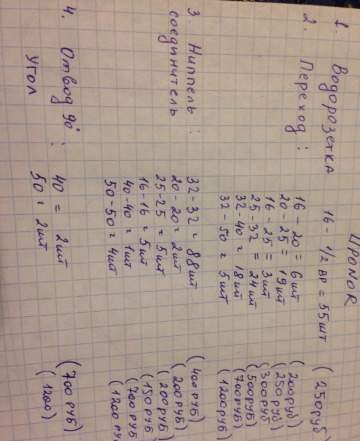 UPONOR
1 Водорозетка 16 - 1/2 вр = 55шт (250руб)
2. Переход :
16 - 20 = 6шт (200руб)
20 - 25 = 19шт (250руб)
16 - 25 = 3шт (300руб
25 - 32 = 24шт (500руб)
32 - 40 = 18шт (700руб)
32 - 50 = 5шт (1200руб)
3 Ниппель :
соединитель
32 - 32 = 88шт (400руб)
20 - 20 = 2шт (200руб)
25 - 25 = 5шт (200руб)
16 - 16 = 5шт (150руб
40 - 40 = 1шт (700руб
50 - 50 = 4шт (1200руб
4. Отвод 90° :
Угол
40 = 2шт (700руб)
50 = 2шт (1200)